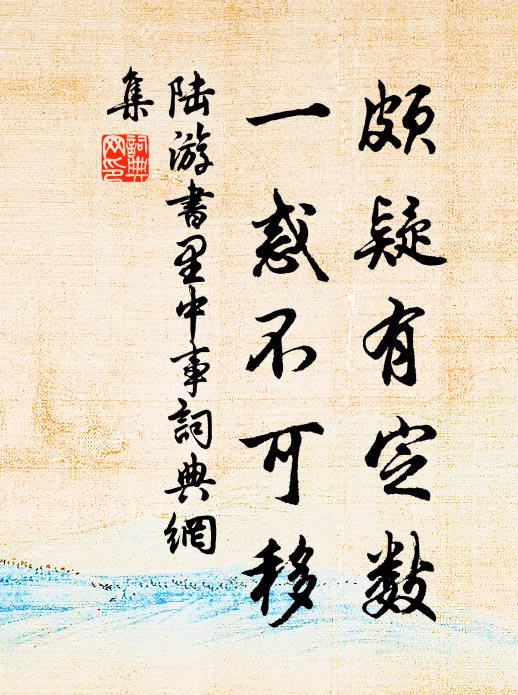 頗疑有定數
一惑不可移
陸游書里中事詞典網
集
詞典
網印